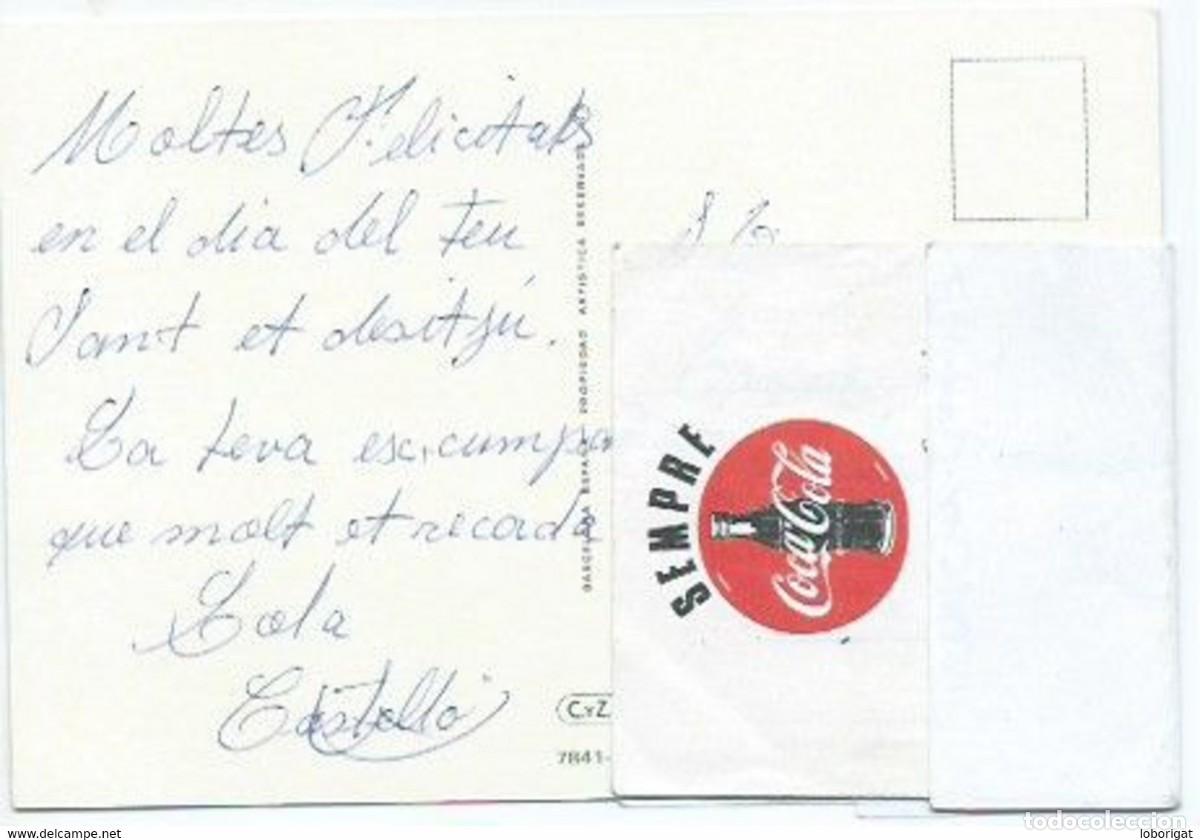 Moltes Felicitats
en el dia del teu
Sant et desitjú.
La teva ex.cumpa
que molt et recorda
Lola
Castelló
BARCELONA ESPAÑA PROPIEDAD ARTISTICA RESERVADA
C.Y Z
7841-
SEMPRE
Coca-Cola
todocoleccion
www.todocoleccion.net
loborigat